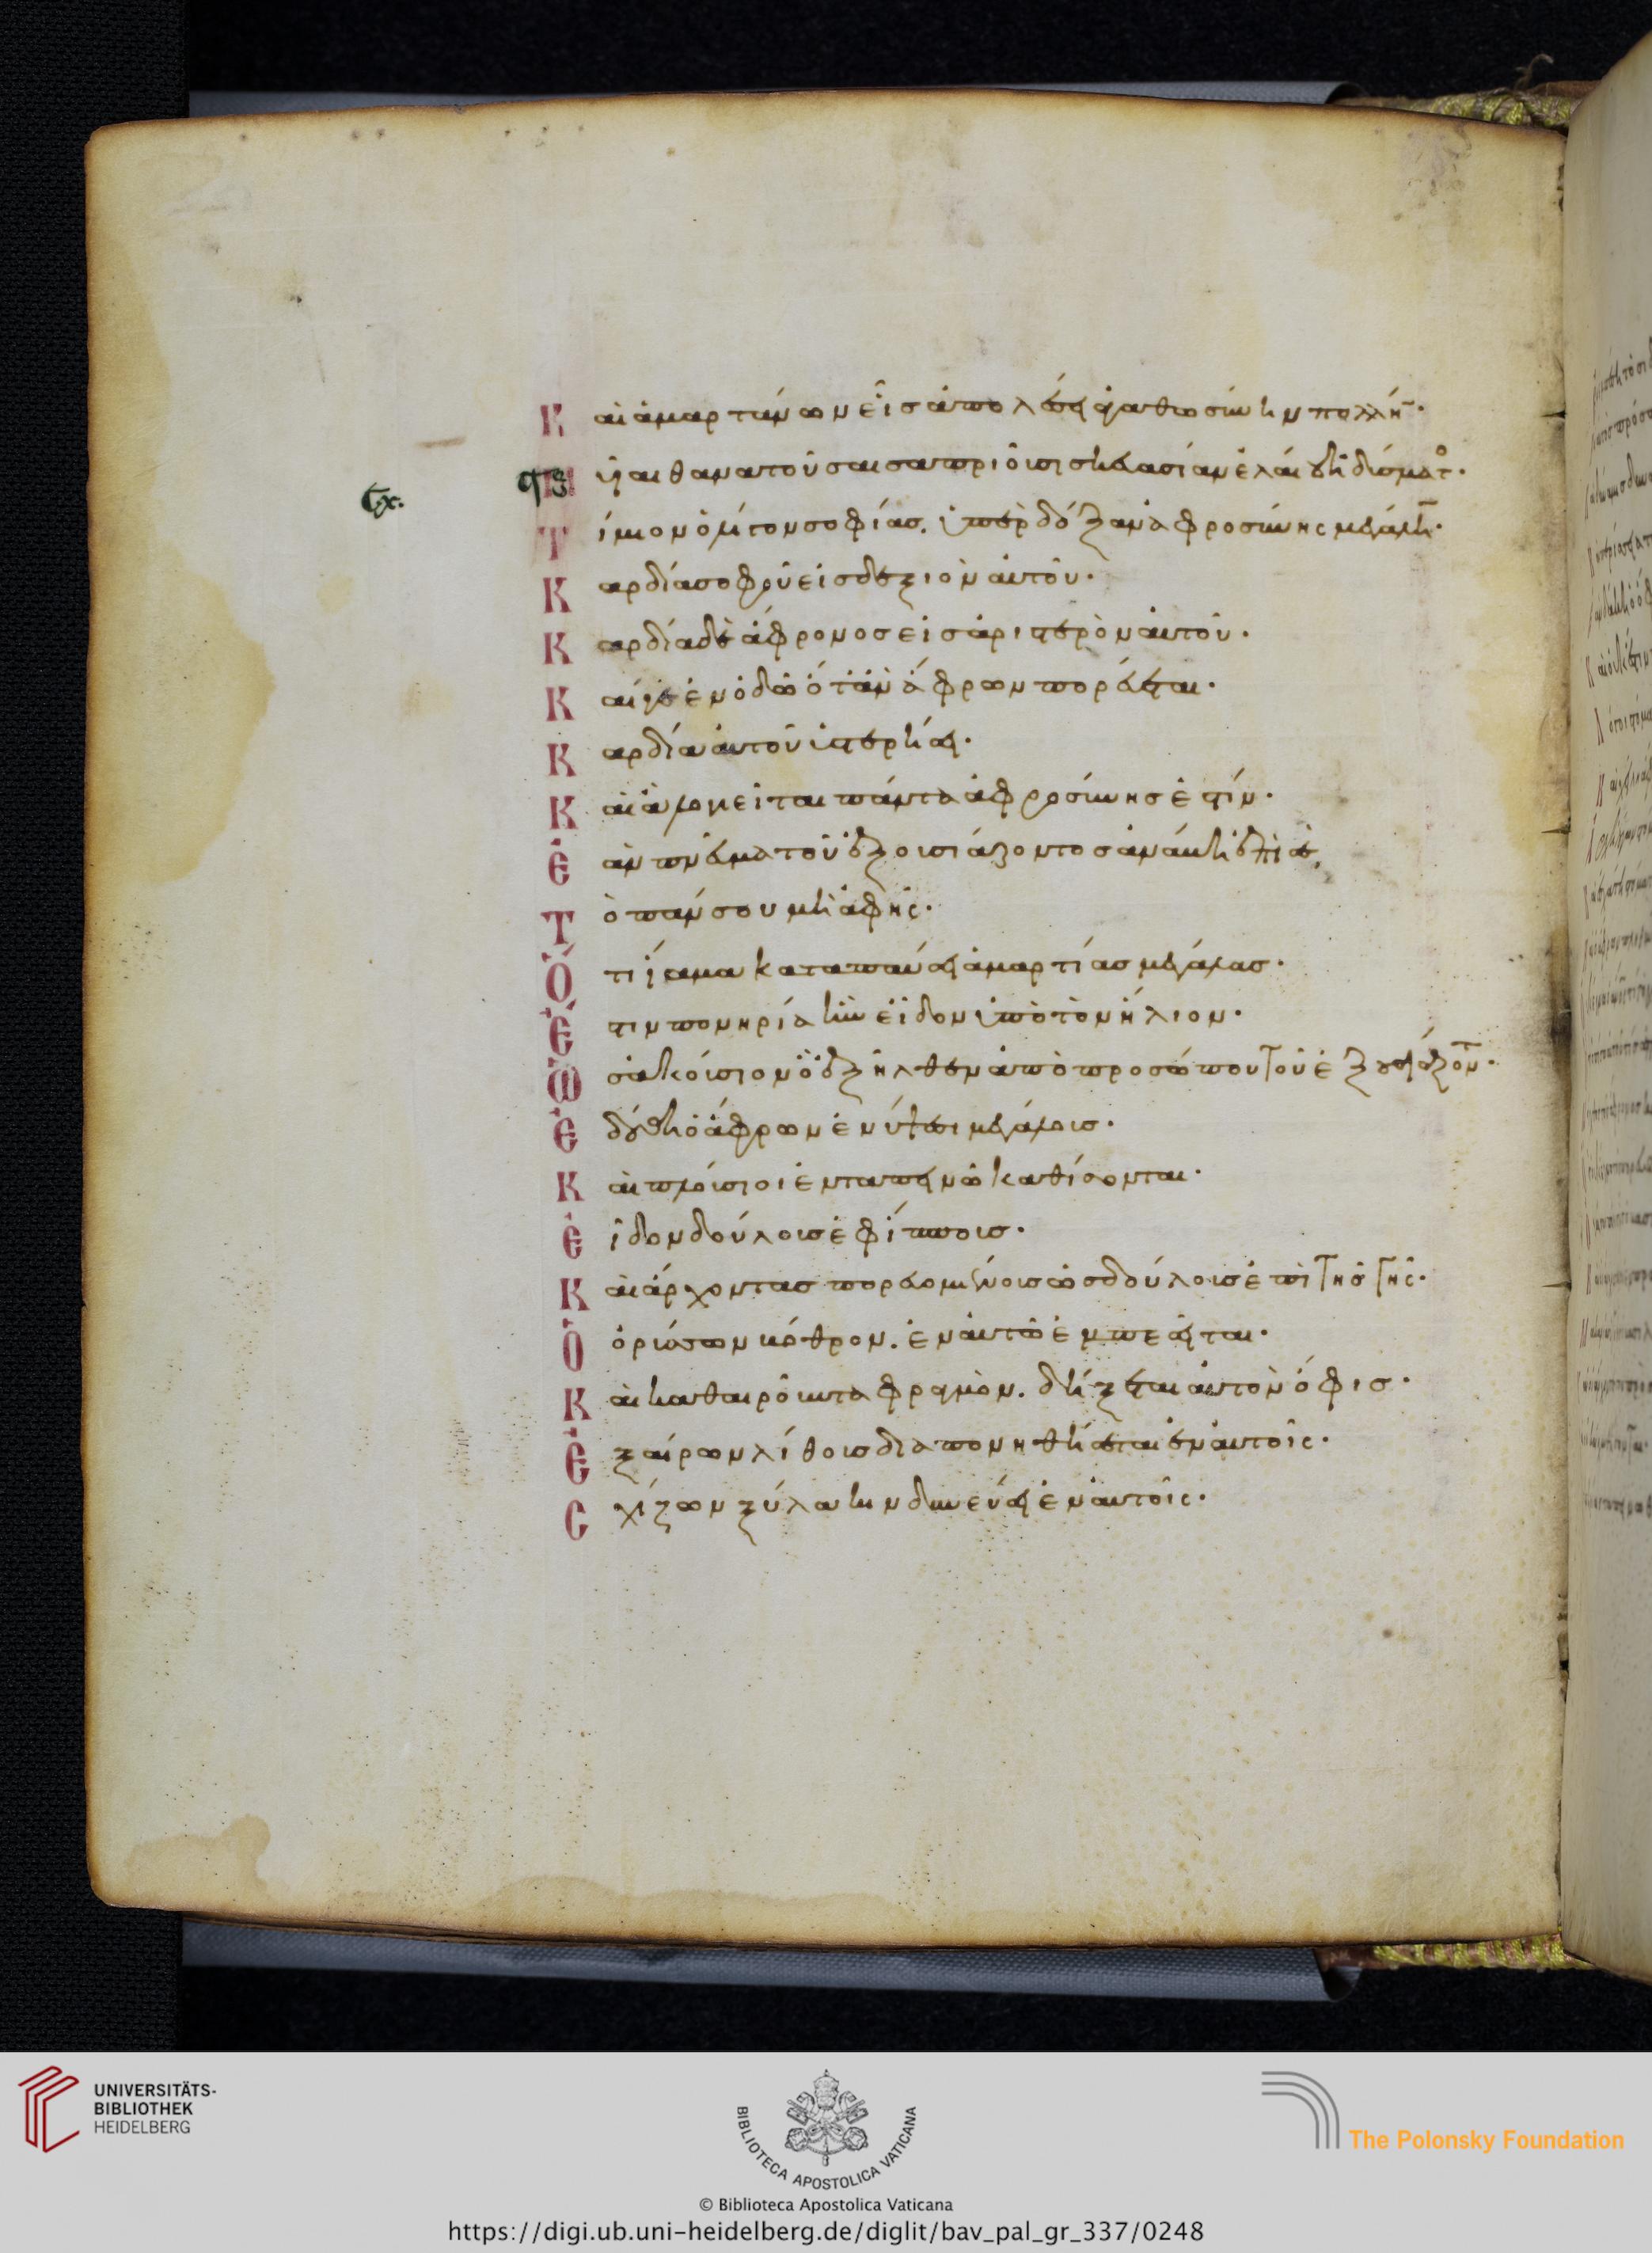 Καὶ ἁμαρτάνων εἷς ἀπολέσει ἀγαθωσύνην πολλήν·
Μυῖαι θανατοῦσαι σαπριοῦσι σκευασίαν ἐλαίου ἡδύσματος·
Τίμιον ὀλίγον σοφίας. ὑπὲρ δόξαν ἀφροσύνης μεγάλην·
Καρδία σοφοῦ εἰς δεξιὸν αὐτοῦ·
Καρδία δὲ ἄφρονος εἰς ἀριστερὸν αὐτοῦ·
Καί γε ἐν ὁδῷ ὅταν ἄφρων πορεύεται·
Καρδία αὐτοῦ ὑστερήσει·
Καὶ ἃ λογιεῖται πάντα ἀφροσύνης ἐστίν·
Ἐὰν πνεῦμα τοῦ ἐξουσιάζοντος ἀναβῇ ἐπὶ σέ,
Τόπον σου μὴ ἀφῇς·
Ὅτι ἴαμα καταπαύσει ἁμαρτίας μεγάλας·
Ἔστιν πονηρία ἣν εἶδον ὑπὸ τὸν ἥλιον·
Ὡς ἀκούσιον ὃ ἐξῆλθεν ἀπὸ προσώπου τοῦ ἐξουσιάζοντος·
Ἐδόθη ὁ ἄφρων ἐν ὕψεσι μεγάλοις·
Καὶ πλούσιοι ἐν ταπεινῷ καθίσονται·
Εἶδον δούλους ἐφ ἵππους·
Καὶ ἄρχοντας πορευομένους ὡς δούλους ἐπὶ τῆς γῆς·
Ὁ ὀρύσσων βόθρον. ἐν αὐτῷ ἐμπεσεῖται·
Καὶ καθαιροῦντα φραγμὸν. δήξεται αὐτὸν ὄφις·
Ἐξαίρων λίθους διαπονηθήσεται ἐν αὐτοῖς·
Σχίζων ξύλα κινδυνεύσει ἐν αὐτοῖς·
UNIVERSITÄTS-
BIBLIOTHEK
HEIDELBERG
BIBLIOTECA APOSTOLICA VATICANA
The Polonsky Foundation
© Biblioteca Apostolica Vaticana
https://digi.ub.uni-heidelberg.de/diglit/bav_pal_gr_337/0248